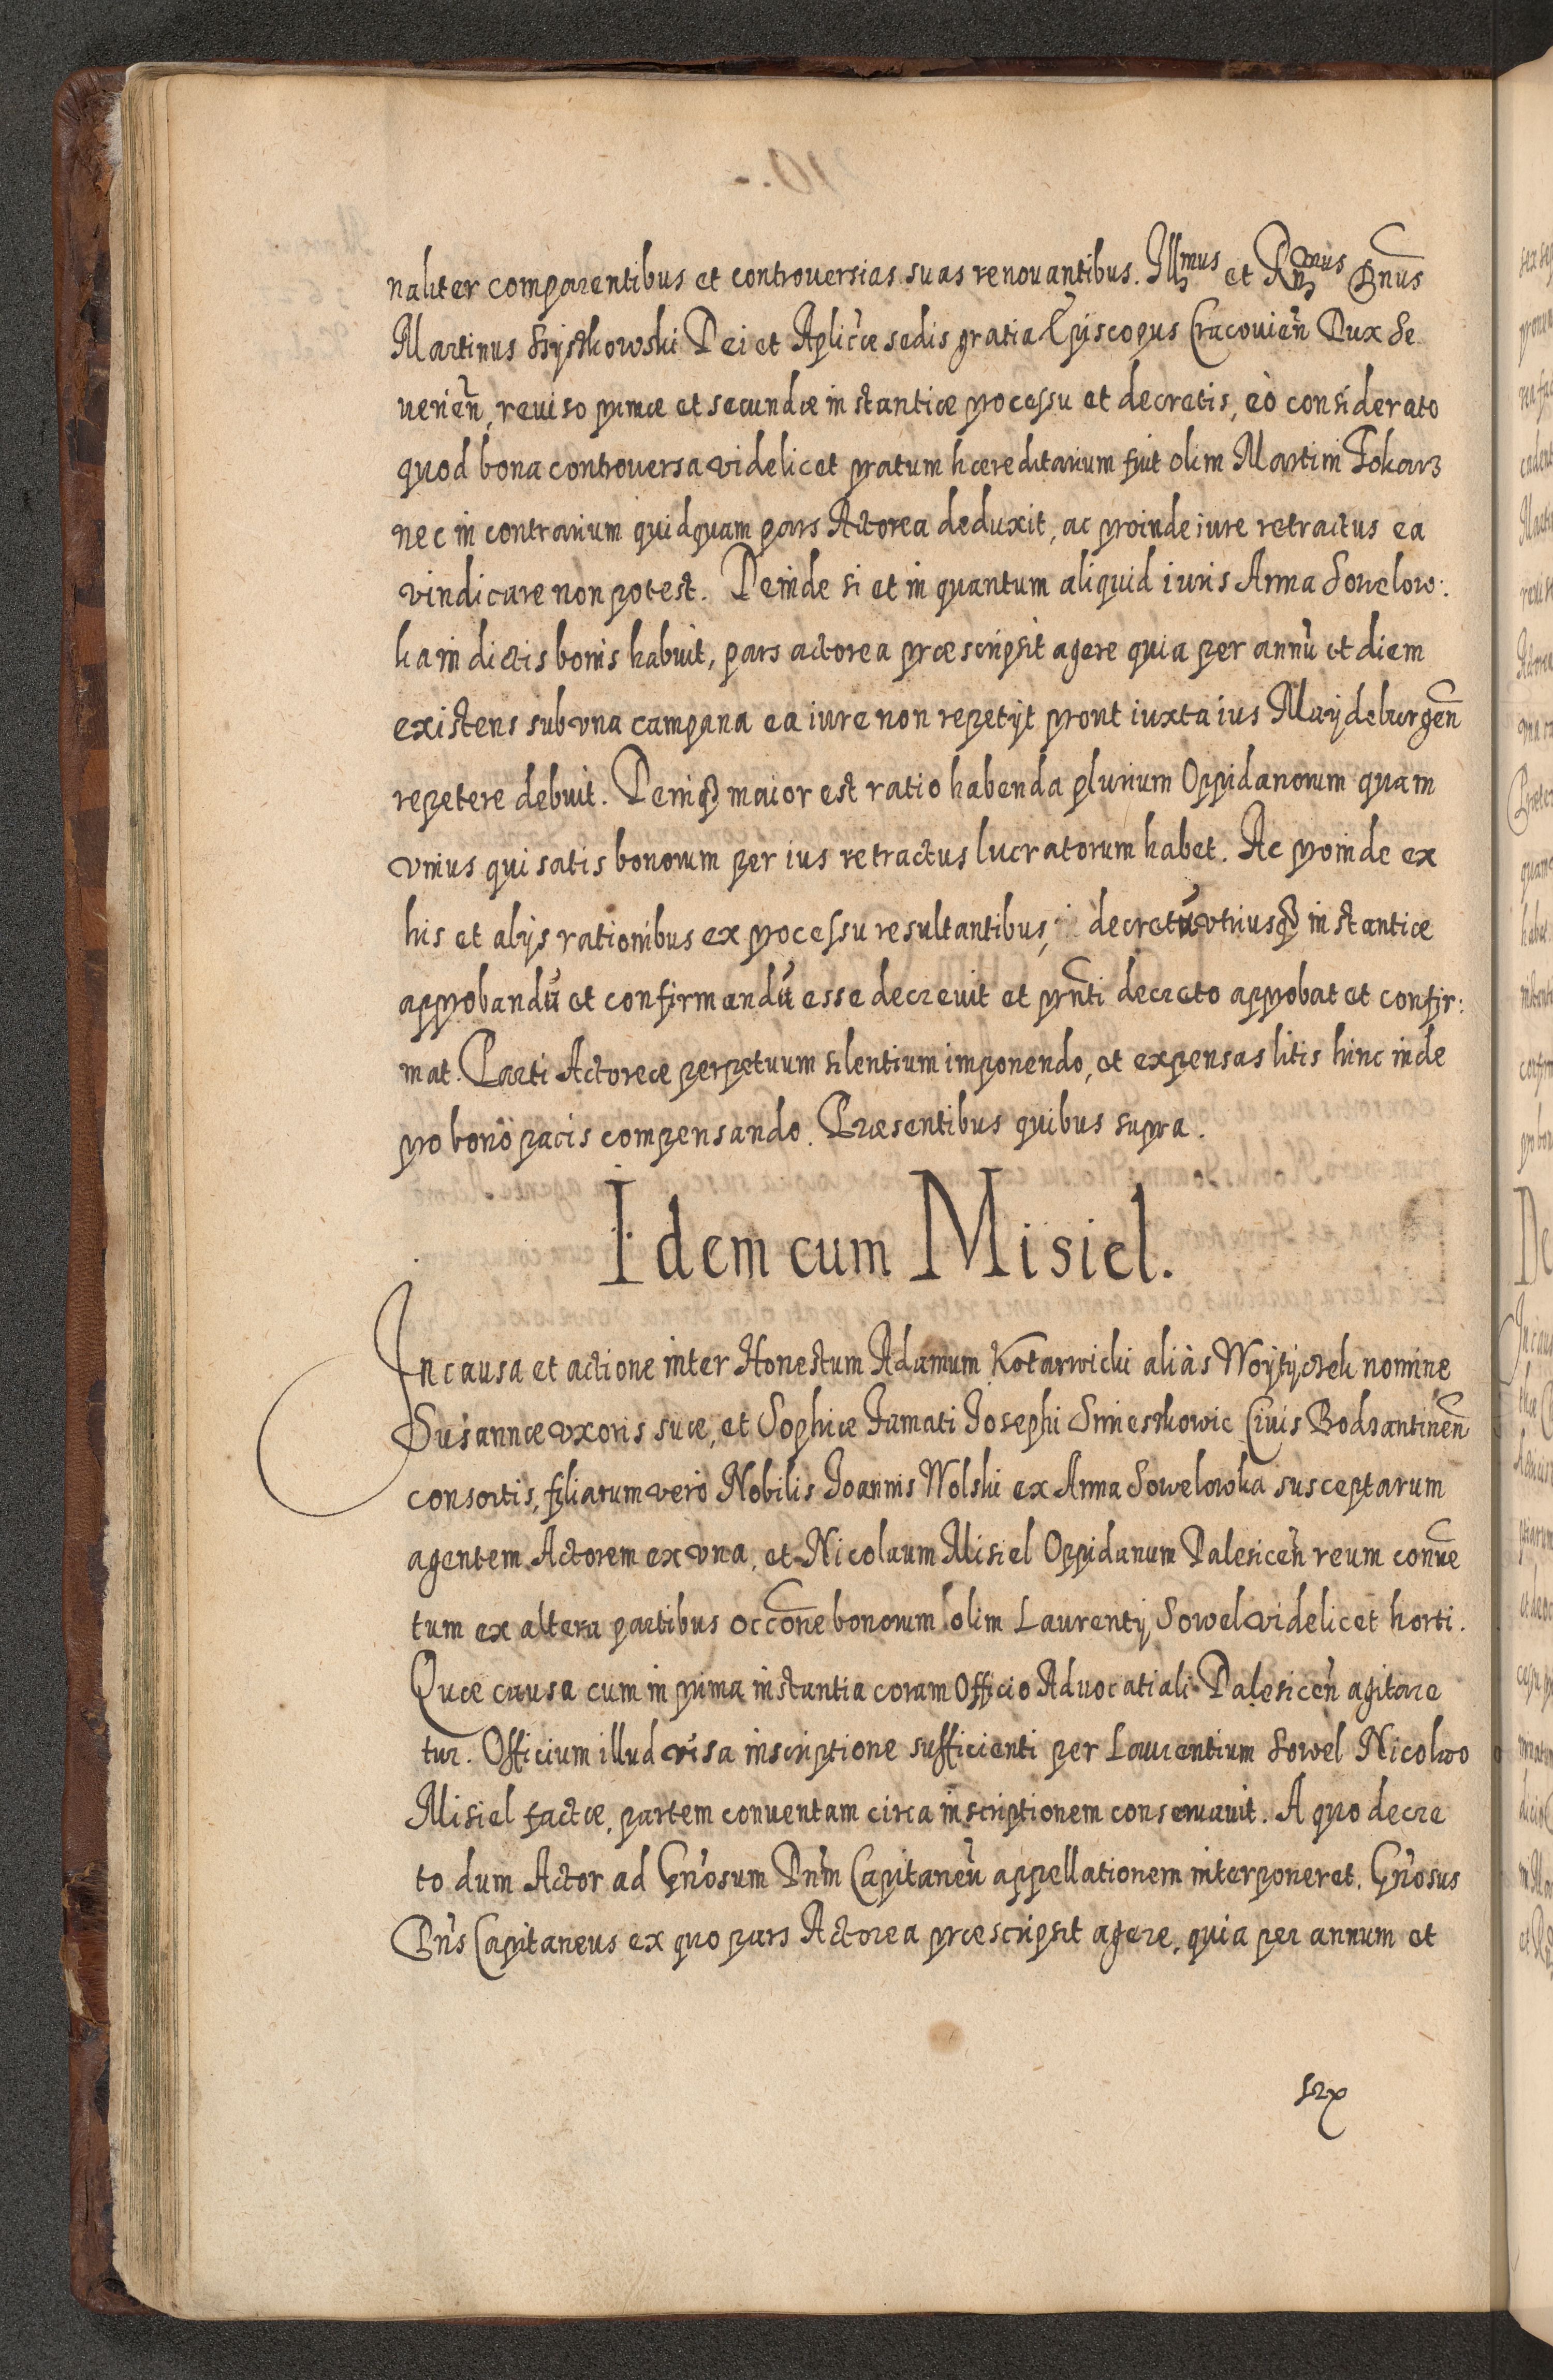 naliter comparentibus et controuersias suas renouantibus. Illmus et Rndmus Dnus
Martinus Szyszkowski Dei et Aplicæ sedis gratia Episcopus Cracouien Dux Se
uerien, reuiso primæ et secundæ instantiæ processu et decretis, eò considerato
quod bona controuersa videlicet pratum hæreditarium fuit olim Martini Tokarz
nec in contrarium quidquam pars Actorea deduxit, ac proinde iure retractus ea
vindicare non potest. Deinde si et in quantum aliquid iuris Anna Sowelow:
ka in dictis bonis habuit, pars actorea præscripsit agere quia per annū et diem
existens sub vna campana ea iure non repetijt prout iuxta ius Maydeburgen
repetere debuit. Deniq3 maior est ratio habenda plurium Oppidanorum quam
vnius qui satis bonorum per ius retractus lucratorum habet. Ac proinde ex
his et alijs rationibus ex processu resultantibus, decretū vtriusq3 instantiæ
approbandū et confirmandū esse decreuit et prnti decreto approbat et confir:
mat. Parti Actoreæ perpetuum silentium imponendo, et expensas litis hinc inde
pro bono pacis compensando. Præsentibus quibus supra.
Idem cum Misiel.
In causa et actione inter Honestum Adamum Kotarwicki aliàs Woytyczek nomine
Susannæ vxoris suæ, et Sophiæ Famati Josephi Smieszkowic Ciuis Bodzantinen
consortis, filiarum verò Nobilis Joannis Wolski ex Anna Sowelowka susceptarum
agentem Actorem ex vna, et Nicolaum Misiel Oppidanum Dalesicen reum conue
tum ex altera partibus occone bonorum olim Laurentij Sowel videlicet horti.
Quæ causa cum in prima instantia coram Officio Aduocatiali Dalesicen agitare
tur. Officium illud visa inscriptione sufficienti per Laurentium Sowel Nicolao
Misiel factæ, partem conuentam circa inscriptionem conseruauit. A quo decre
to dum Actor ad Gnosum Dnm Capitaneū appellationem interponeret. Gnosus
Dns Capitaneus ex quo pars Actorea præscripsit agere, quia per annum et
sex